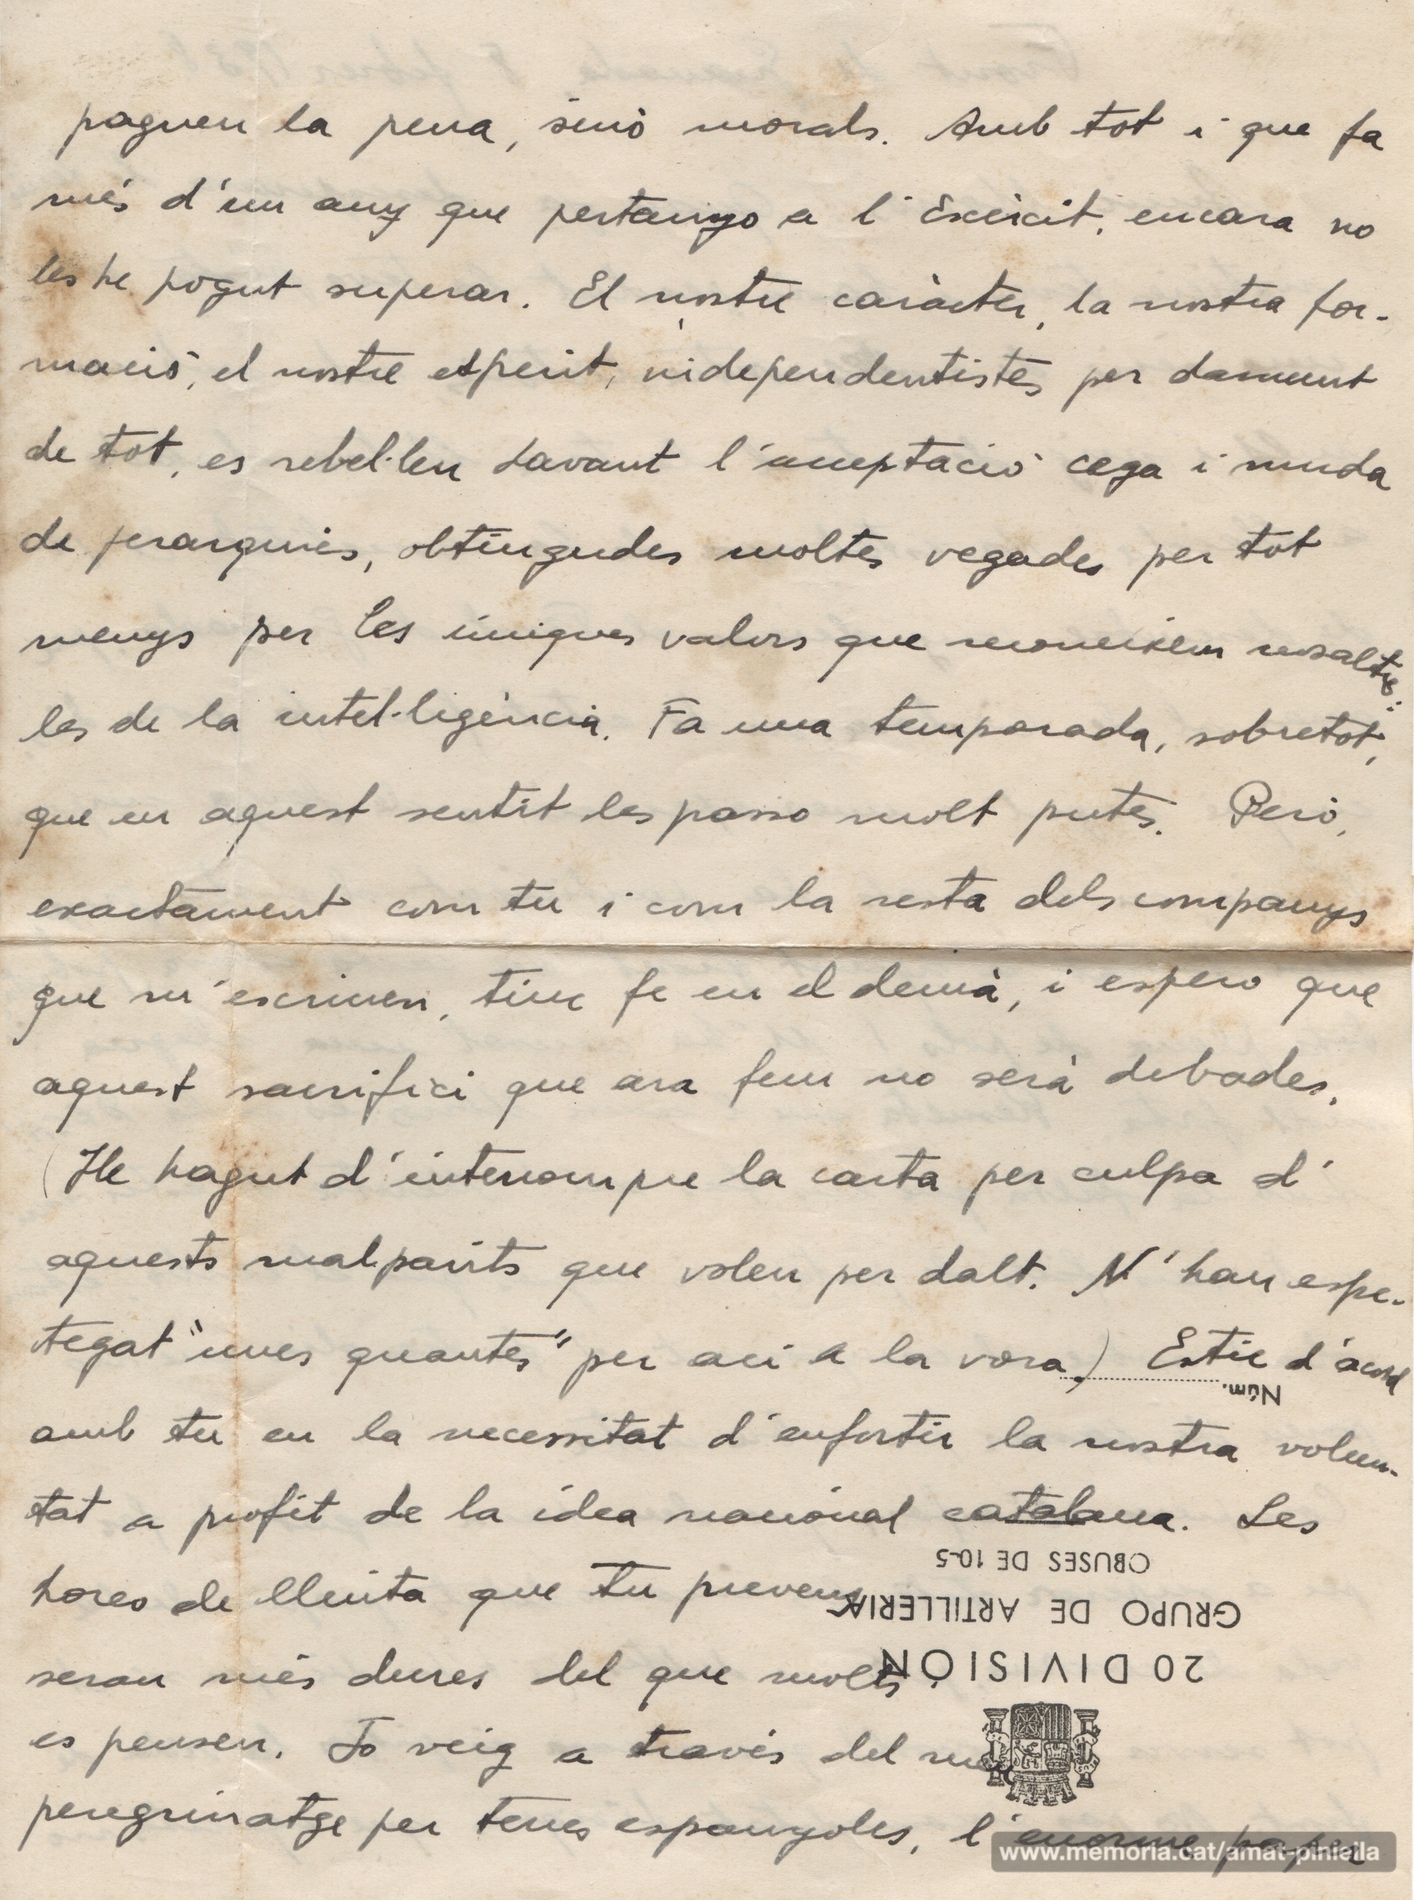 paguen la pena, sinó morals. Amb tot i que fa
més d'un any que pertanyo a l'Exèrcit, encara no
les he pogut superar. El nostre caràcter, la nostra for-
mació, el nostre esperit, independentistes per damunt
de tot, es rebel·len davant l'acceptació cega i muda
de jerarquies, obtingudes moltes vegades per tot
menys per les úniques valors que reconeixem nosaltres:
les de la intel·ligència. Fa una temporada, sobretot,
que en aquest sentit les passo molt putes. Però,
exactament com tu i com la resta dels companys
que m'escriuen, tinc fe en el demà, i espero que
aquest sacrifici que ara fem no serà debades.
(He hagut d'interrompre la carta per culpa d'
aquests malparits que volen per dalt. N'han espe-
tegat "unes quantes" per ací a la vora) Estic d'acord
Núm.
amb tu en la necessitat d'enfortir la nostra volun-
tat a profit de la idea nacional catalana. Les
OBUSES DE 10-5
hores de lluita que tu preveus
GRUPO DE ARTILLERIA
seran més dures del que molts
20 DIVISIÓN
es pensen. Jo veig a través del meu
peregrinatge per terres espanyoles, l'enorme paper
www.memoria.cat/amat-piniella